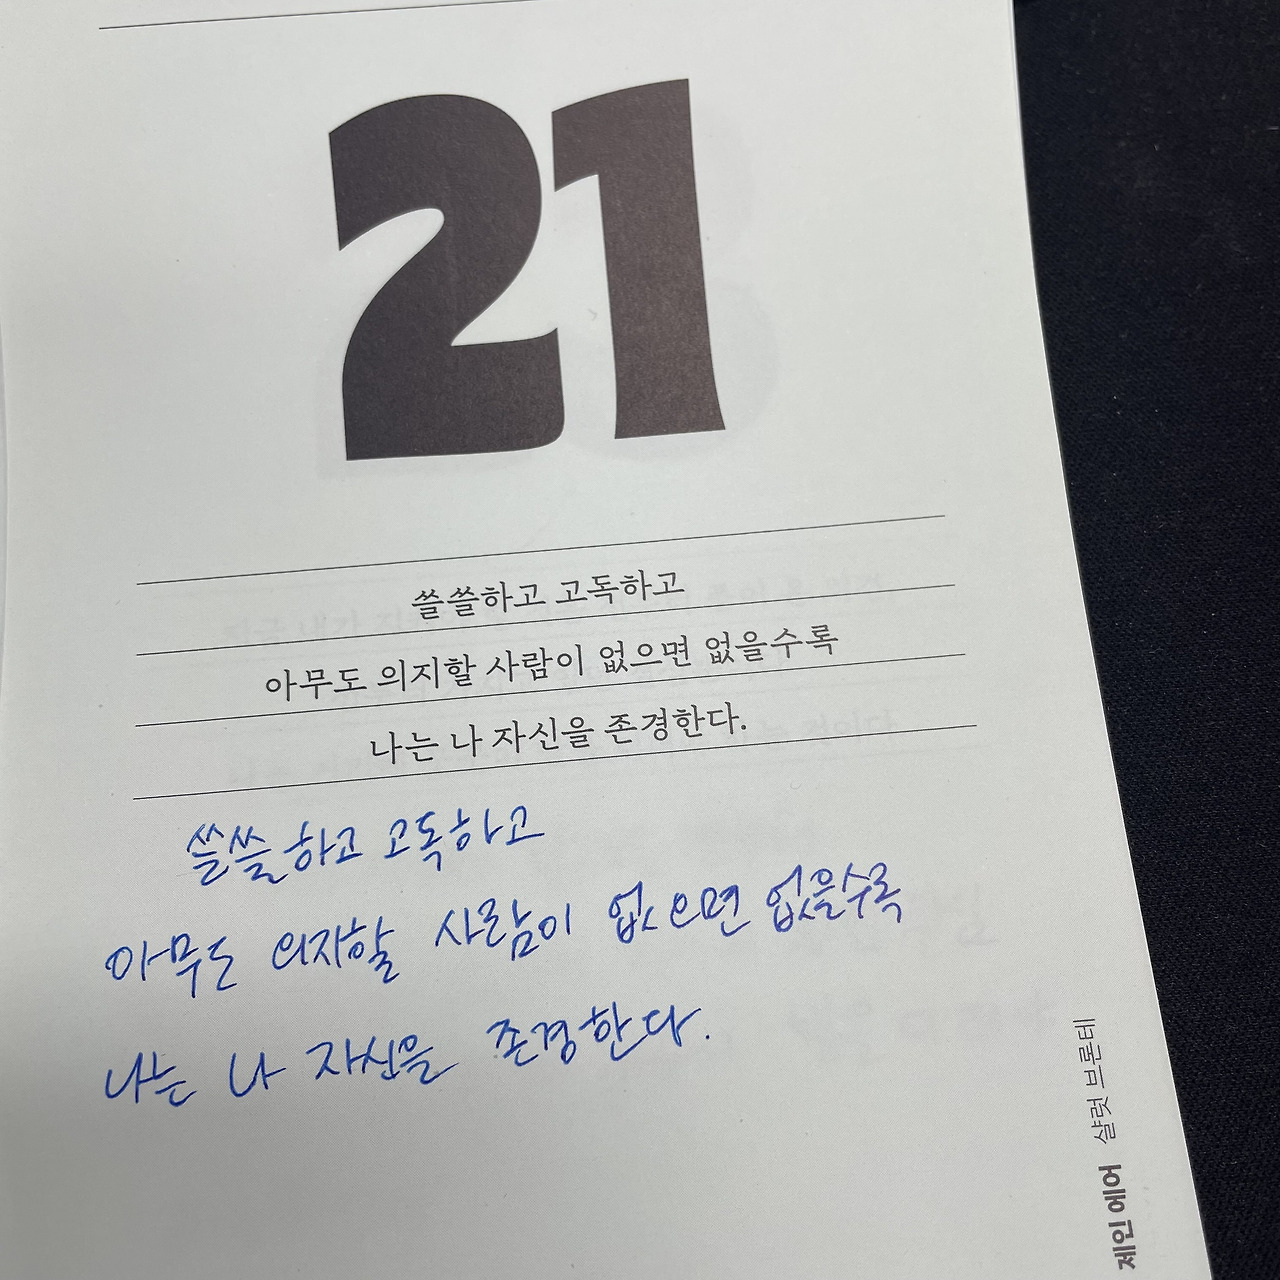 21
쓸쓸하고 고독하고
아무도 의지할 사람이 없으면 없을수록
나는 나 자신을 존경한다.
쓸쓸하고 고독하고
아무도 의지할 사람이 없으면 없을수록
나는 나 자신을 존경한다.
제인 에어 샬럿 브론테